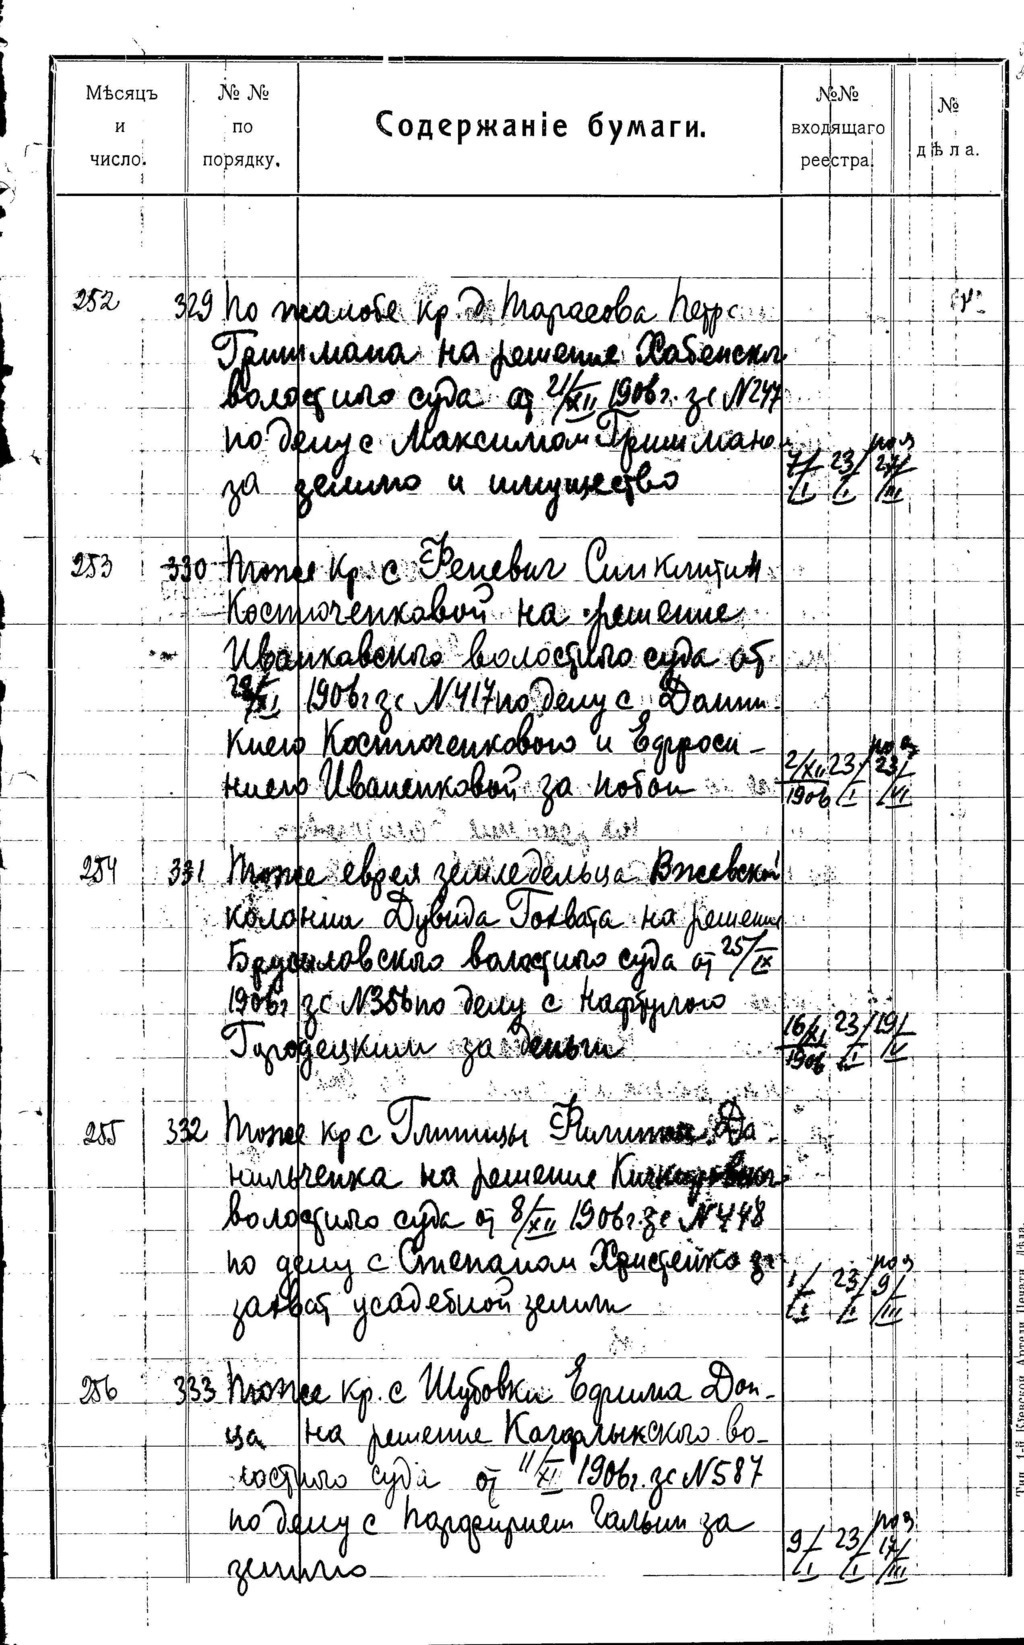 Мѣсяцъ и число.
№ № по порядку.
Содержаніе бумаги.
№№ входящаго реестра.
№ дѣла.
252 329 По жалобе кр. д. Тарасова Петра
Гришмана на решение Хабенског
волостного суда от 21/XII 1906 г. за N 247
по делу с Максимом Гришмано
за землю и имущество
7/I 23/I 27/III
253 330 Тоже кр. с Феневич Синклитии
Костюченковой на решение
Иванковского волостного суда от
/XI 1906 г за N 417 по делу с Домни
киею Костюченковою и Ефроси-
ниею Иваненковой за побои
2/XII 1906 23/I 23/VI
254 331 Тоже еврея земледельца Вжевской
колонии Дувида Гохвата на решение
Брусиловского волостного суда от 25/IX
1906 г за N 356 по делу с Нафтулою
Городецким за деньги
16/XI 1906 23/I 19/IV
255 332 Тоже кр с Глиницы Филиппа Да-
нильченка на решение
волостного суда от 8/XII 1906 г. за N 448
по делу с Степаном Христейко за
захват усадебной земли
1/I 23/I 9/III
256 333 Тоже кр. с Шубовки Ефима Дон-
ца на решение Кагарлыкского во-
лостного суда от 11/XI 1906 г. за N 587
по делу с Парфирием Гальин за
землю
9/I 23/I 17/III
Тип. 1-й Кіевской Артели Печатн. Дѣла.